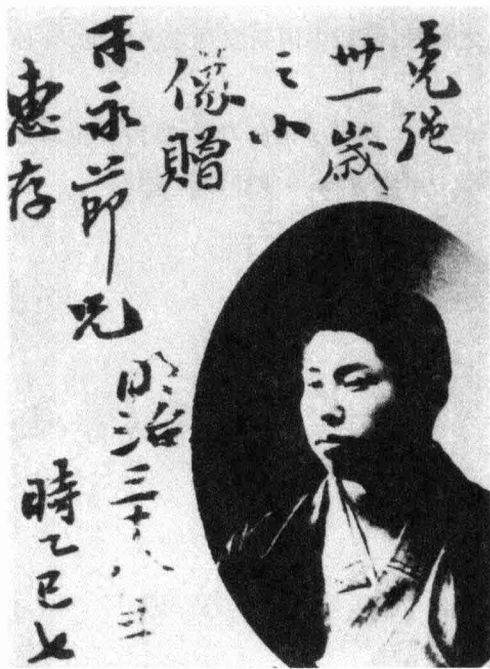 克强
卅一歲
之小
像贈
末永節兄
惠存
明治三十八
時乙巳七